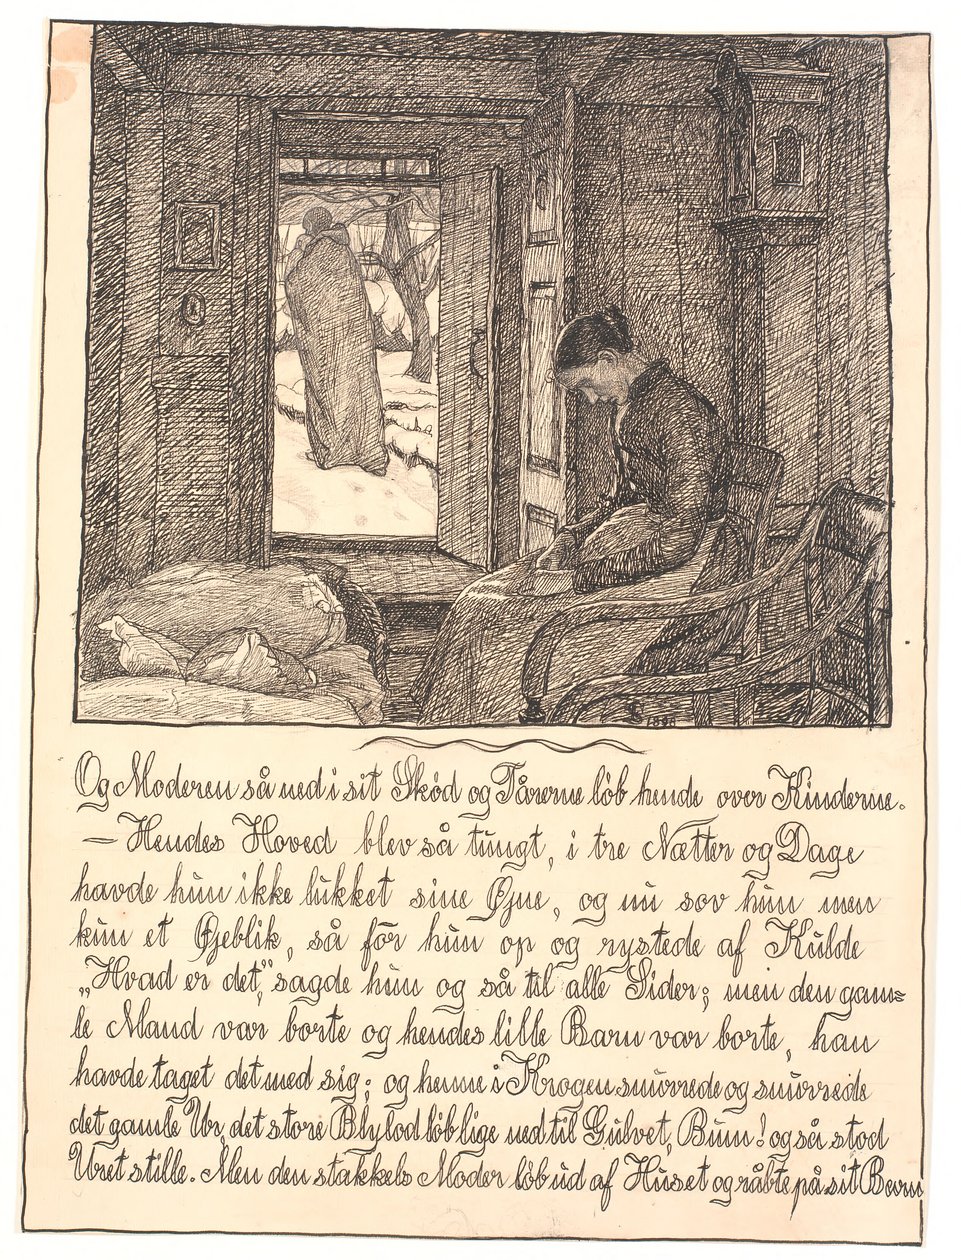 Og Moderen så ned i sit Skød og Tårerne løb hende over Kinderne.
— Hendes Hoved blev så tungt, i tre Nætter og Dage
havde hun ikke lukket sine Øjne, og nu sov hun men
kun et Øjeblik, så fór hun op og rystede af Kulde
„Hvad er det", sagde hun og så til alle Sider; men den gam=
le Mand var borte og hendes lille Barn var borte, han
havde taget det med sig; og henne i Krogen snurrede og snurrede
det gamle Ur, det store Blylod løb lige ned til Gulvet, Bum! og så stod
Uret stille. Men den stakkels Moder løb ud af Huset og råbte på sit Barn